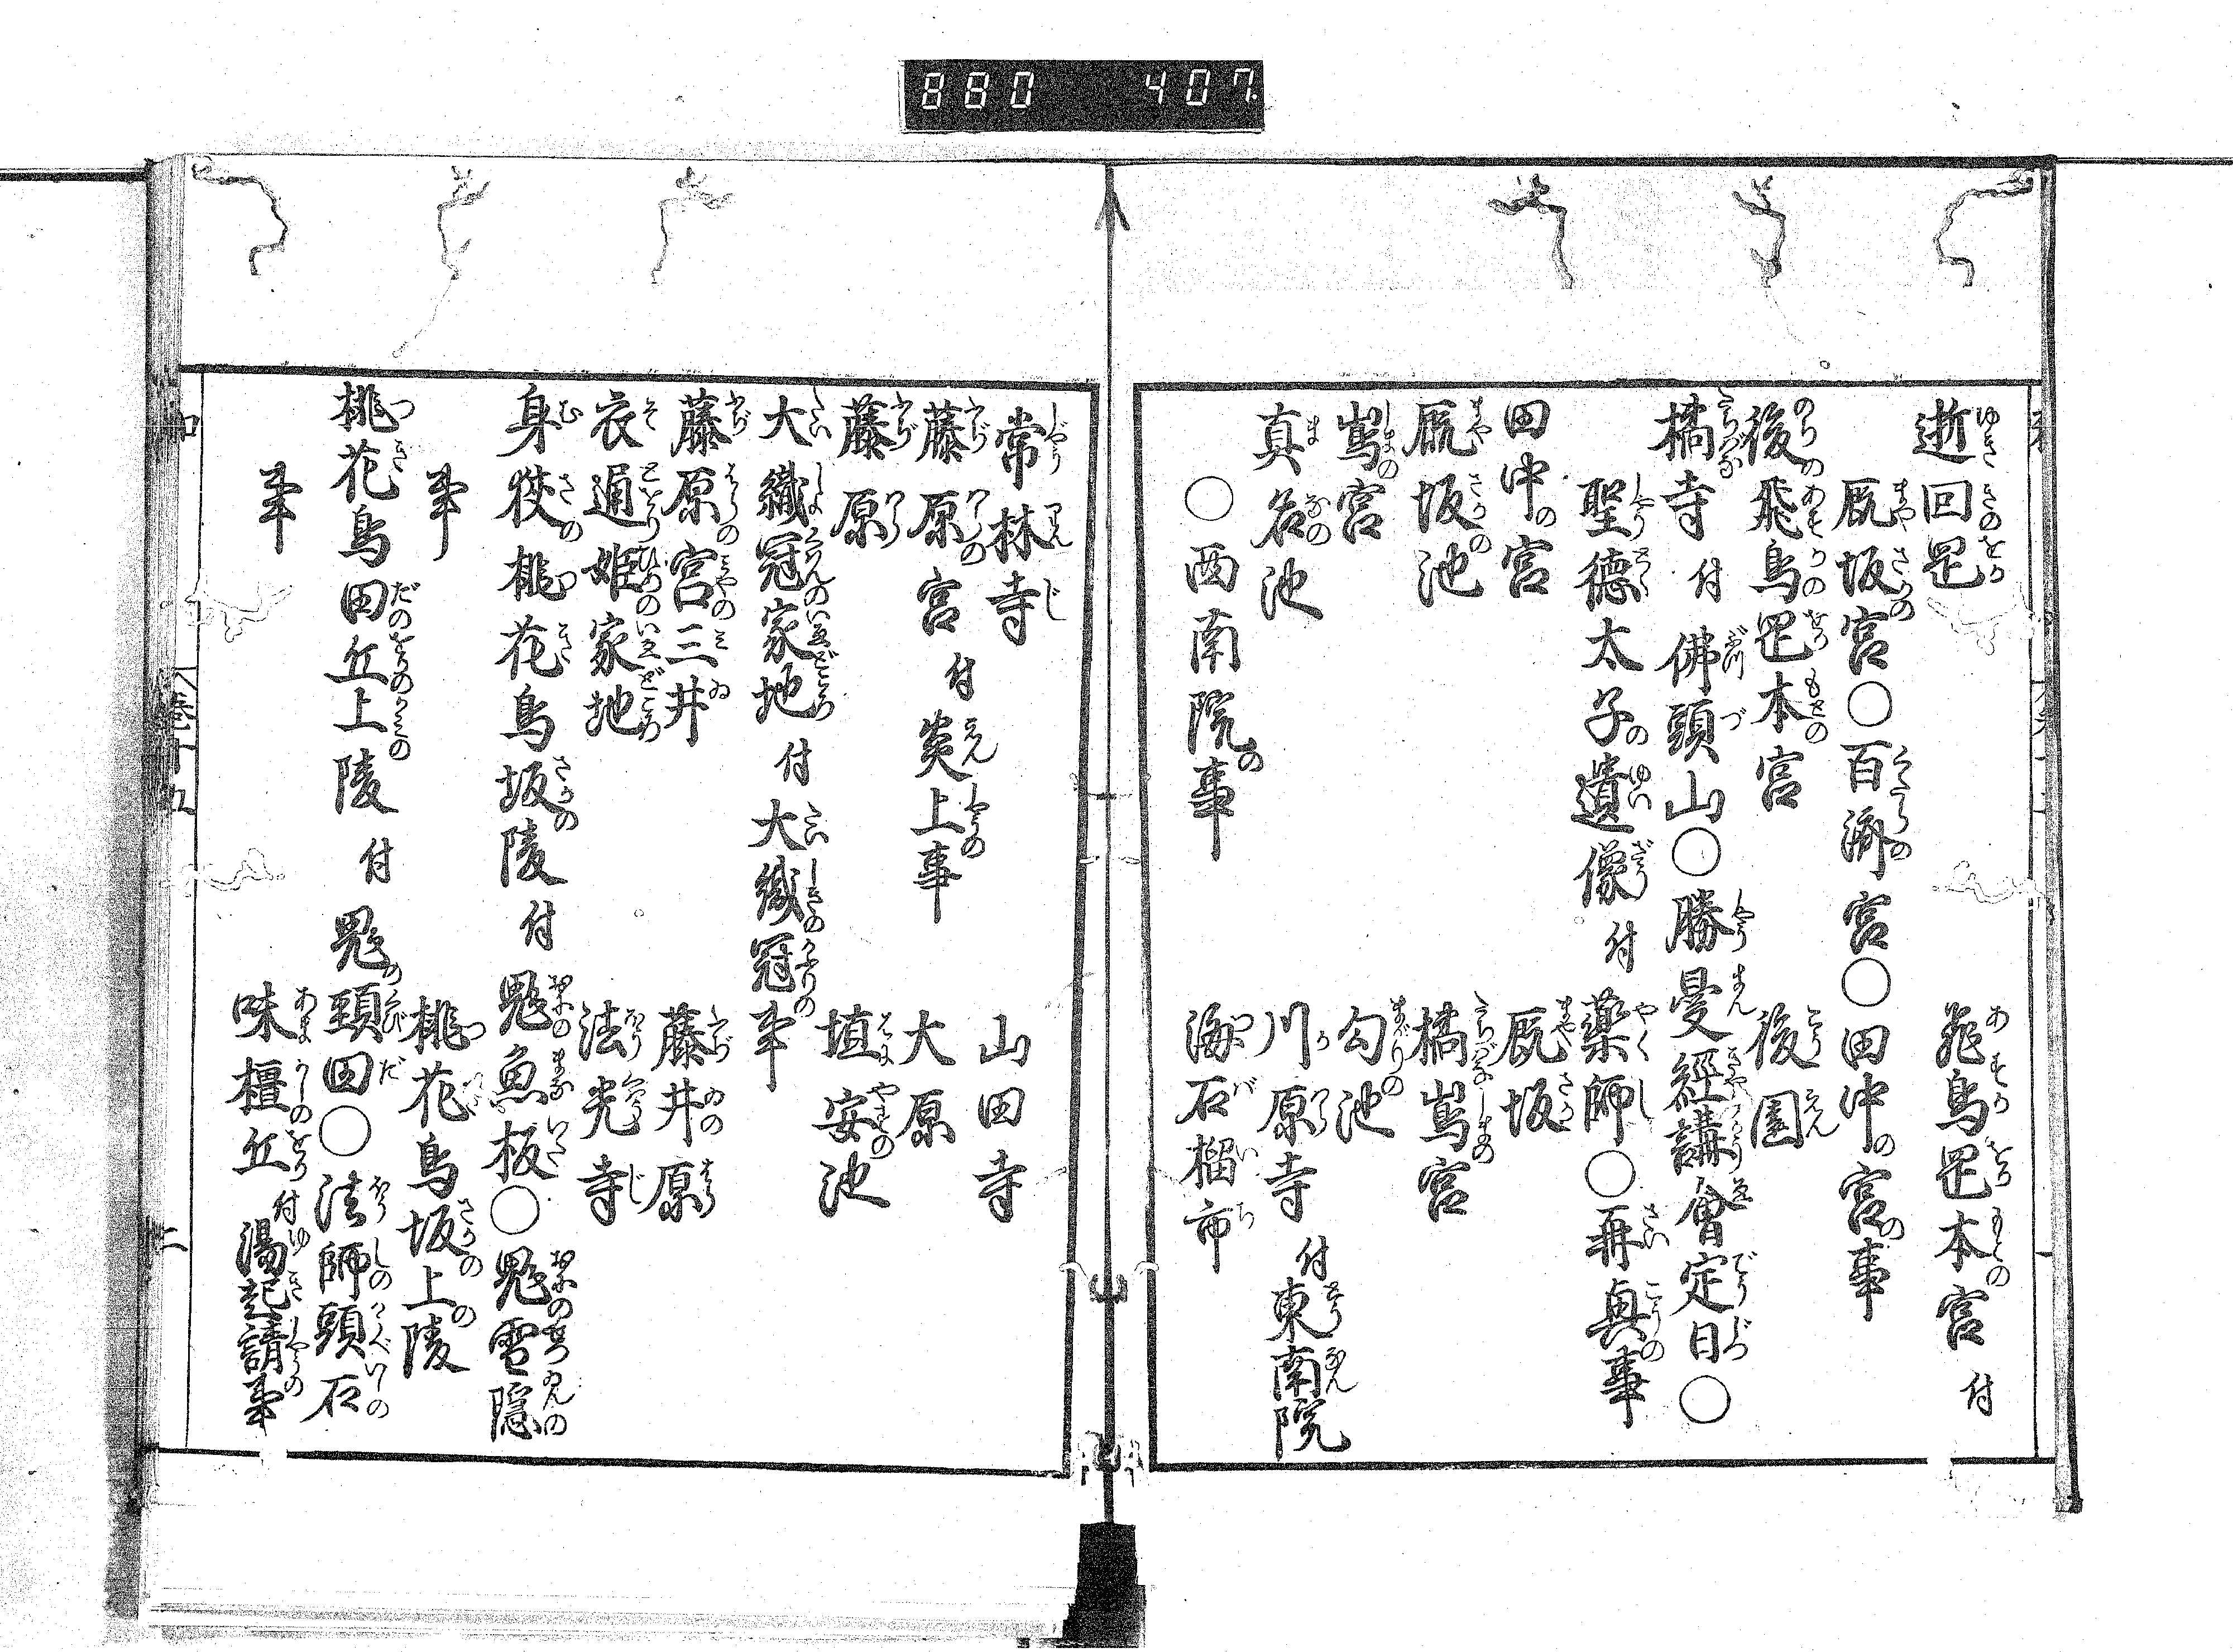 880 407.
逝回罡 飛鳥罡本宮 付
厩坂宮○百濟宮○田中の宮の事
後飛鳥罡本宮 後園
橘寺 付 佛頭山○勝曼經講會定日○
聖德太子の遺像 付 藥師○再興の事
田中の宮 厩坂
厩坂の池 橘嶌宮
嶌の宮 勾の池
真名の池 川原寺 付 東南院
○西南院の事 海石榴市
常林寺 山田寺
藤原の宮 付 炎上の事 大原
藤原 埴安の池
大織冠家地 付 大織冠の事
藤原の宮三井 藤井の原
衣通姫の家地 法光寺
身狹の桃花鳥坂の陵 付 鬼の魚板○鬼の雪隠の
事 桃花鳥坂の上の陵
桃花鳥田の丘の上の陵 付 鬼の頸田○法師の頭石の
事 味橿の丘 付 湯起請の事